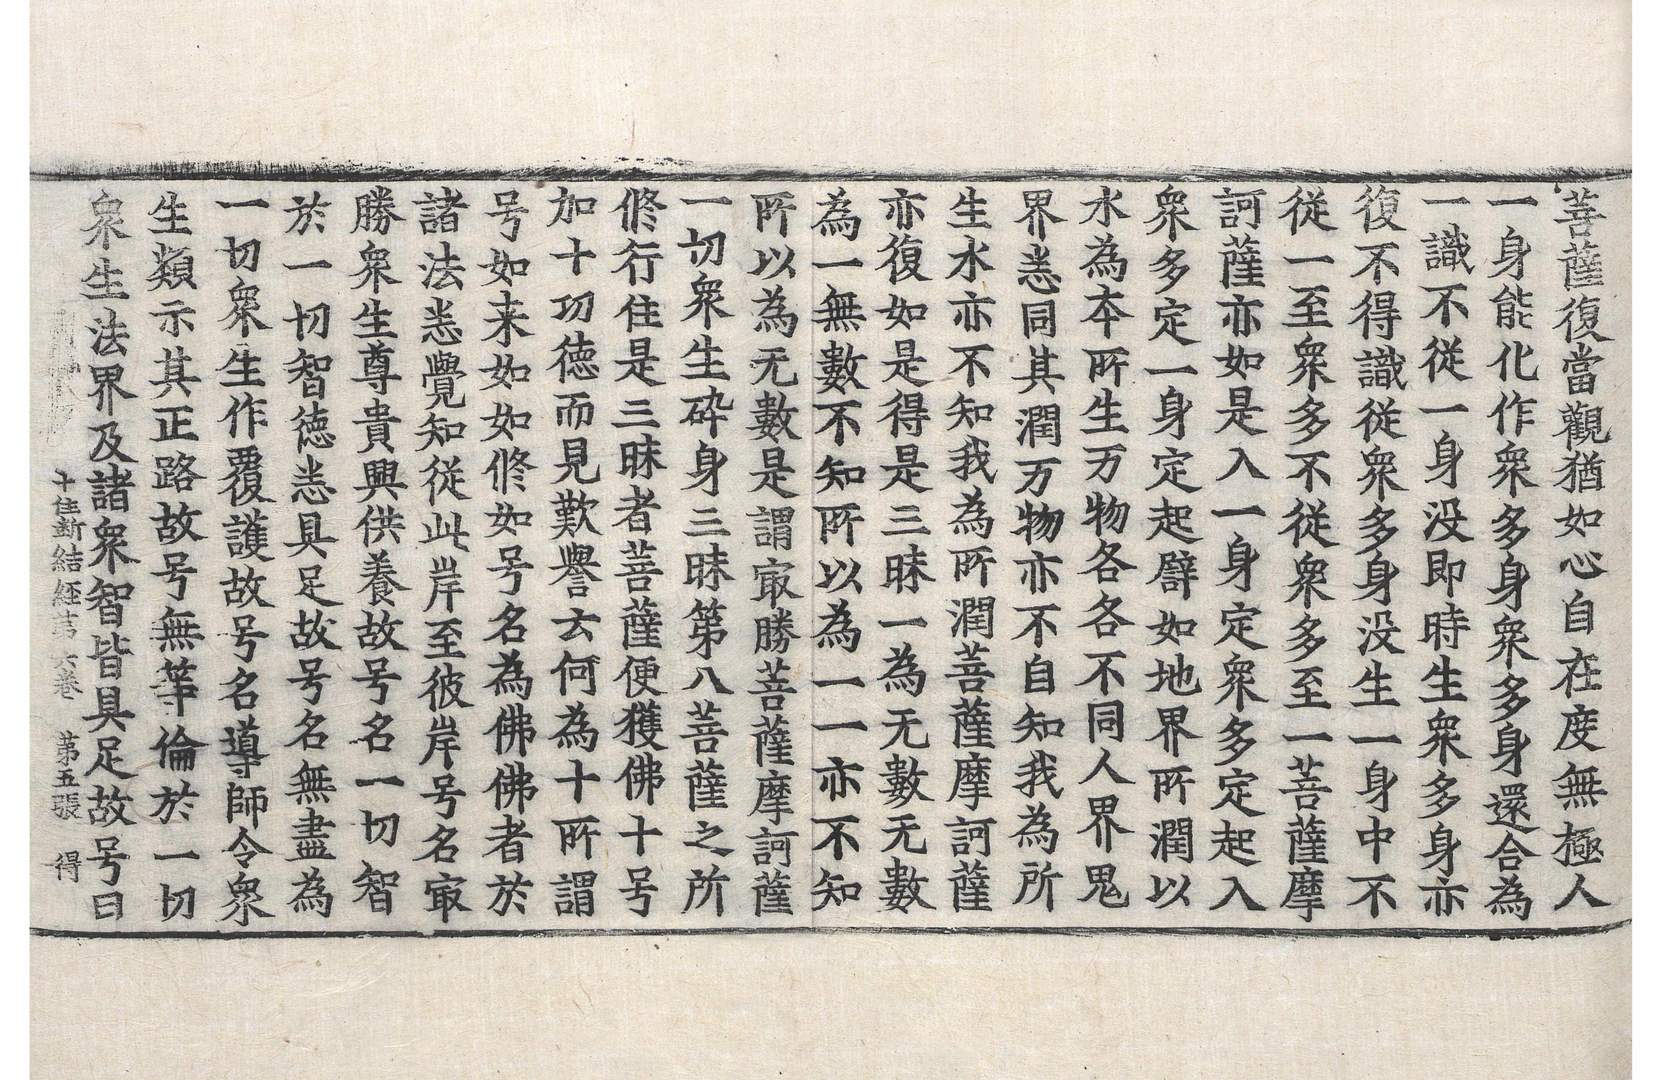 菩薩復當觀猶如心自在度無極人
一身能化作衆多身衆多身還合為
一識不從一身没即時生衆多身亦
復不得識從衆多身没生一身中不
從一至衆多不從衆多至一菩薩摩
訶薩亦如是入一身定衆多定起入
衆多定一身定起譬如地界所潤以
水為本所生万物各各不同人界鬼
界悉同其潤万物亦不自知我為所
生水亦不知我為所潤菩薩摩訶薩
亦復如是得是三昧一為无數无數
為一無數不知所以為一一亦不知
所以為无數是謂㝡勝菩薩摩訶薩
一切衆生碎身三昧第八菩薩之所
修行住是三昧者菩薩便獲佛十号
加十功德而見歎譽云何為十所謂
号如来如如修如号名為佛佛者於
諸法悉覺知從此岸至彼岸号名㝡
勝衆生尊貴興供養故号名一切智
於一切智德悉具足故号名無盡為
一切衆生作覆護故号名導師令衆
生類示其正路故号無等倫於一切
衆生法界及諸衆智皆具足故号曰
十住斷結經第六卷 第五張 得